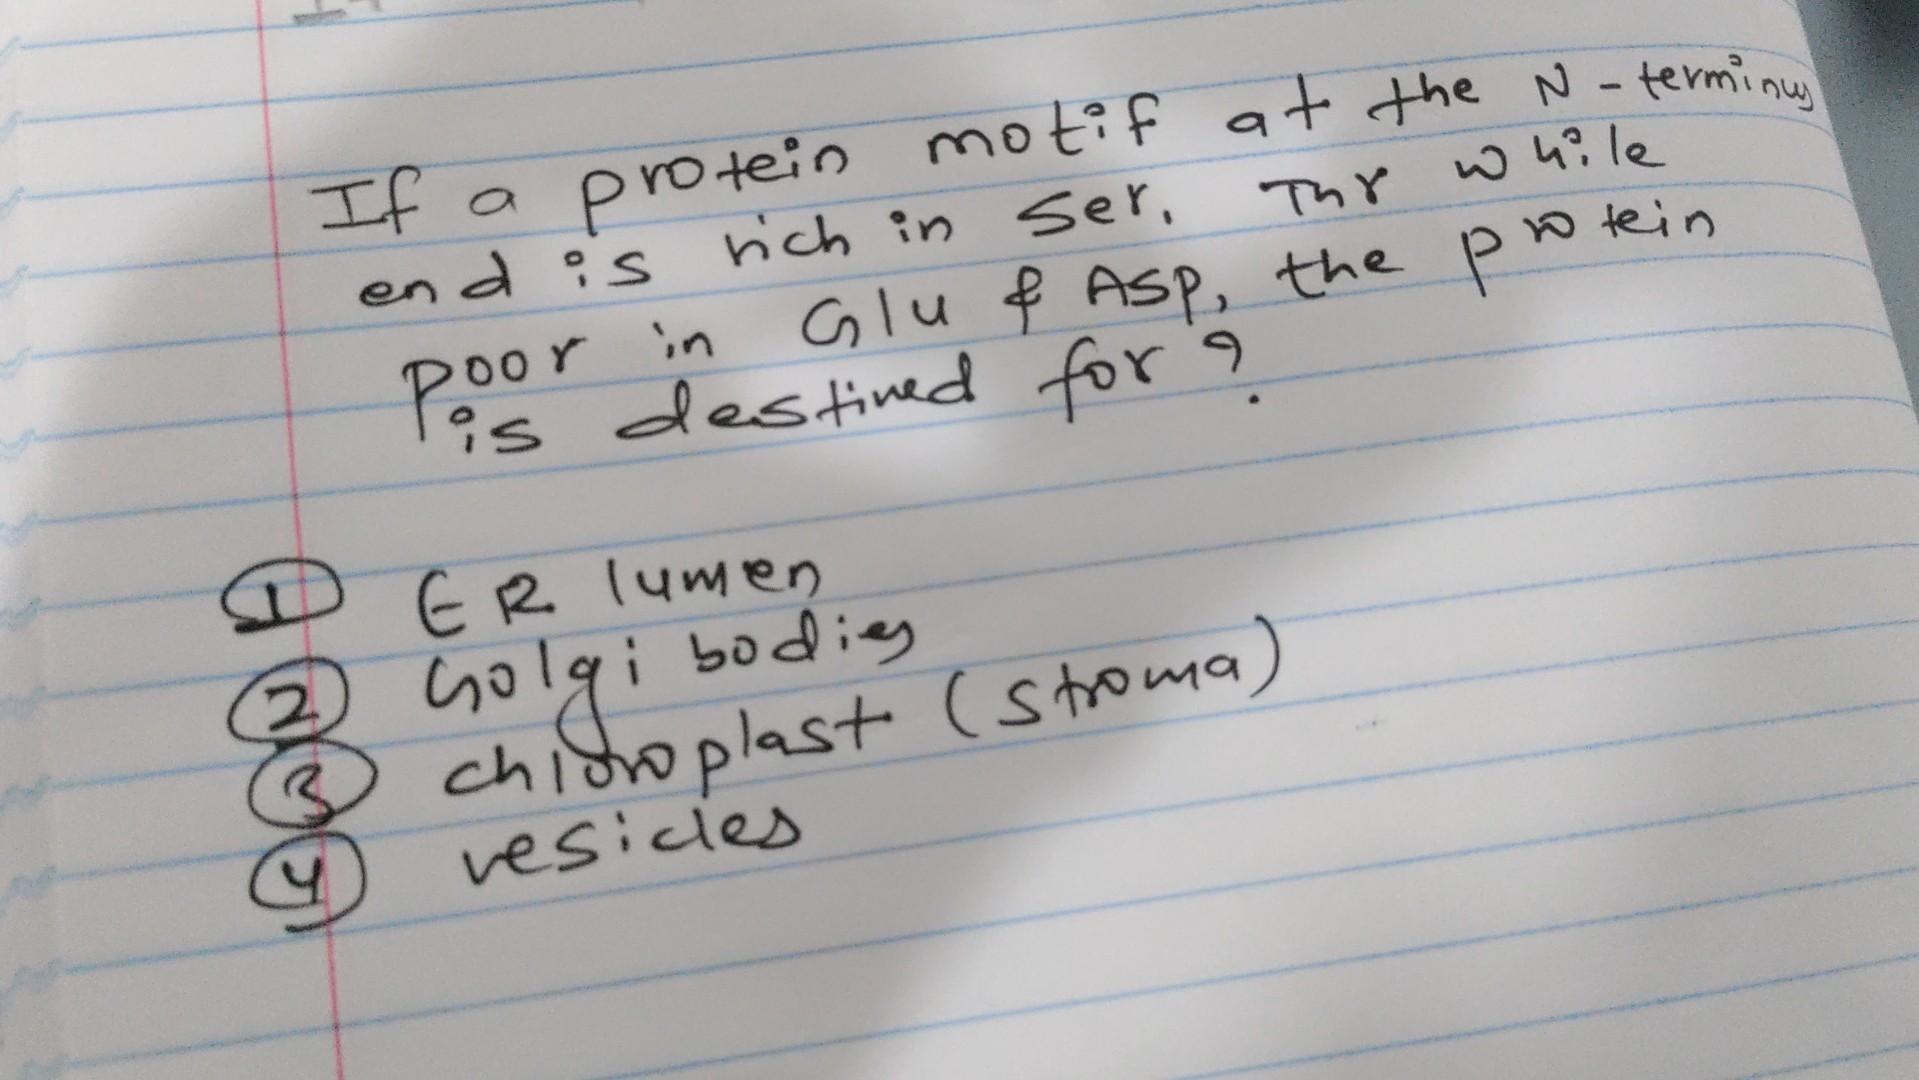 If a protein motif at the N-terminus
end is rich in Ser, Thr while
poor in Glu & Asp, the protein
is destined for?
① ER lumen
② Golgi bodies
③ chloroplast (stroma)
④ vesicles